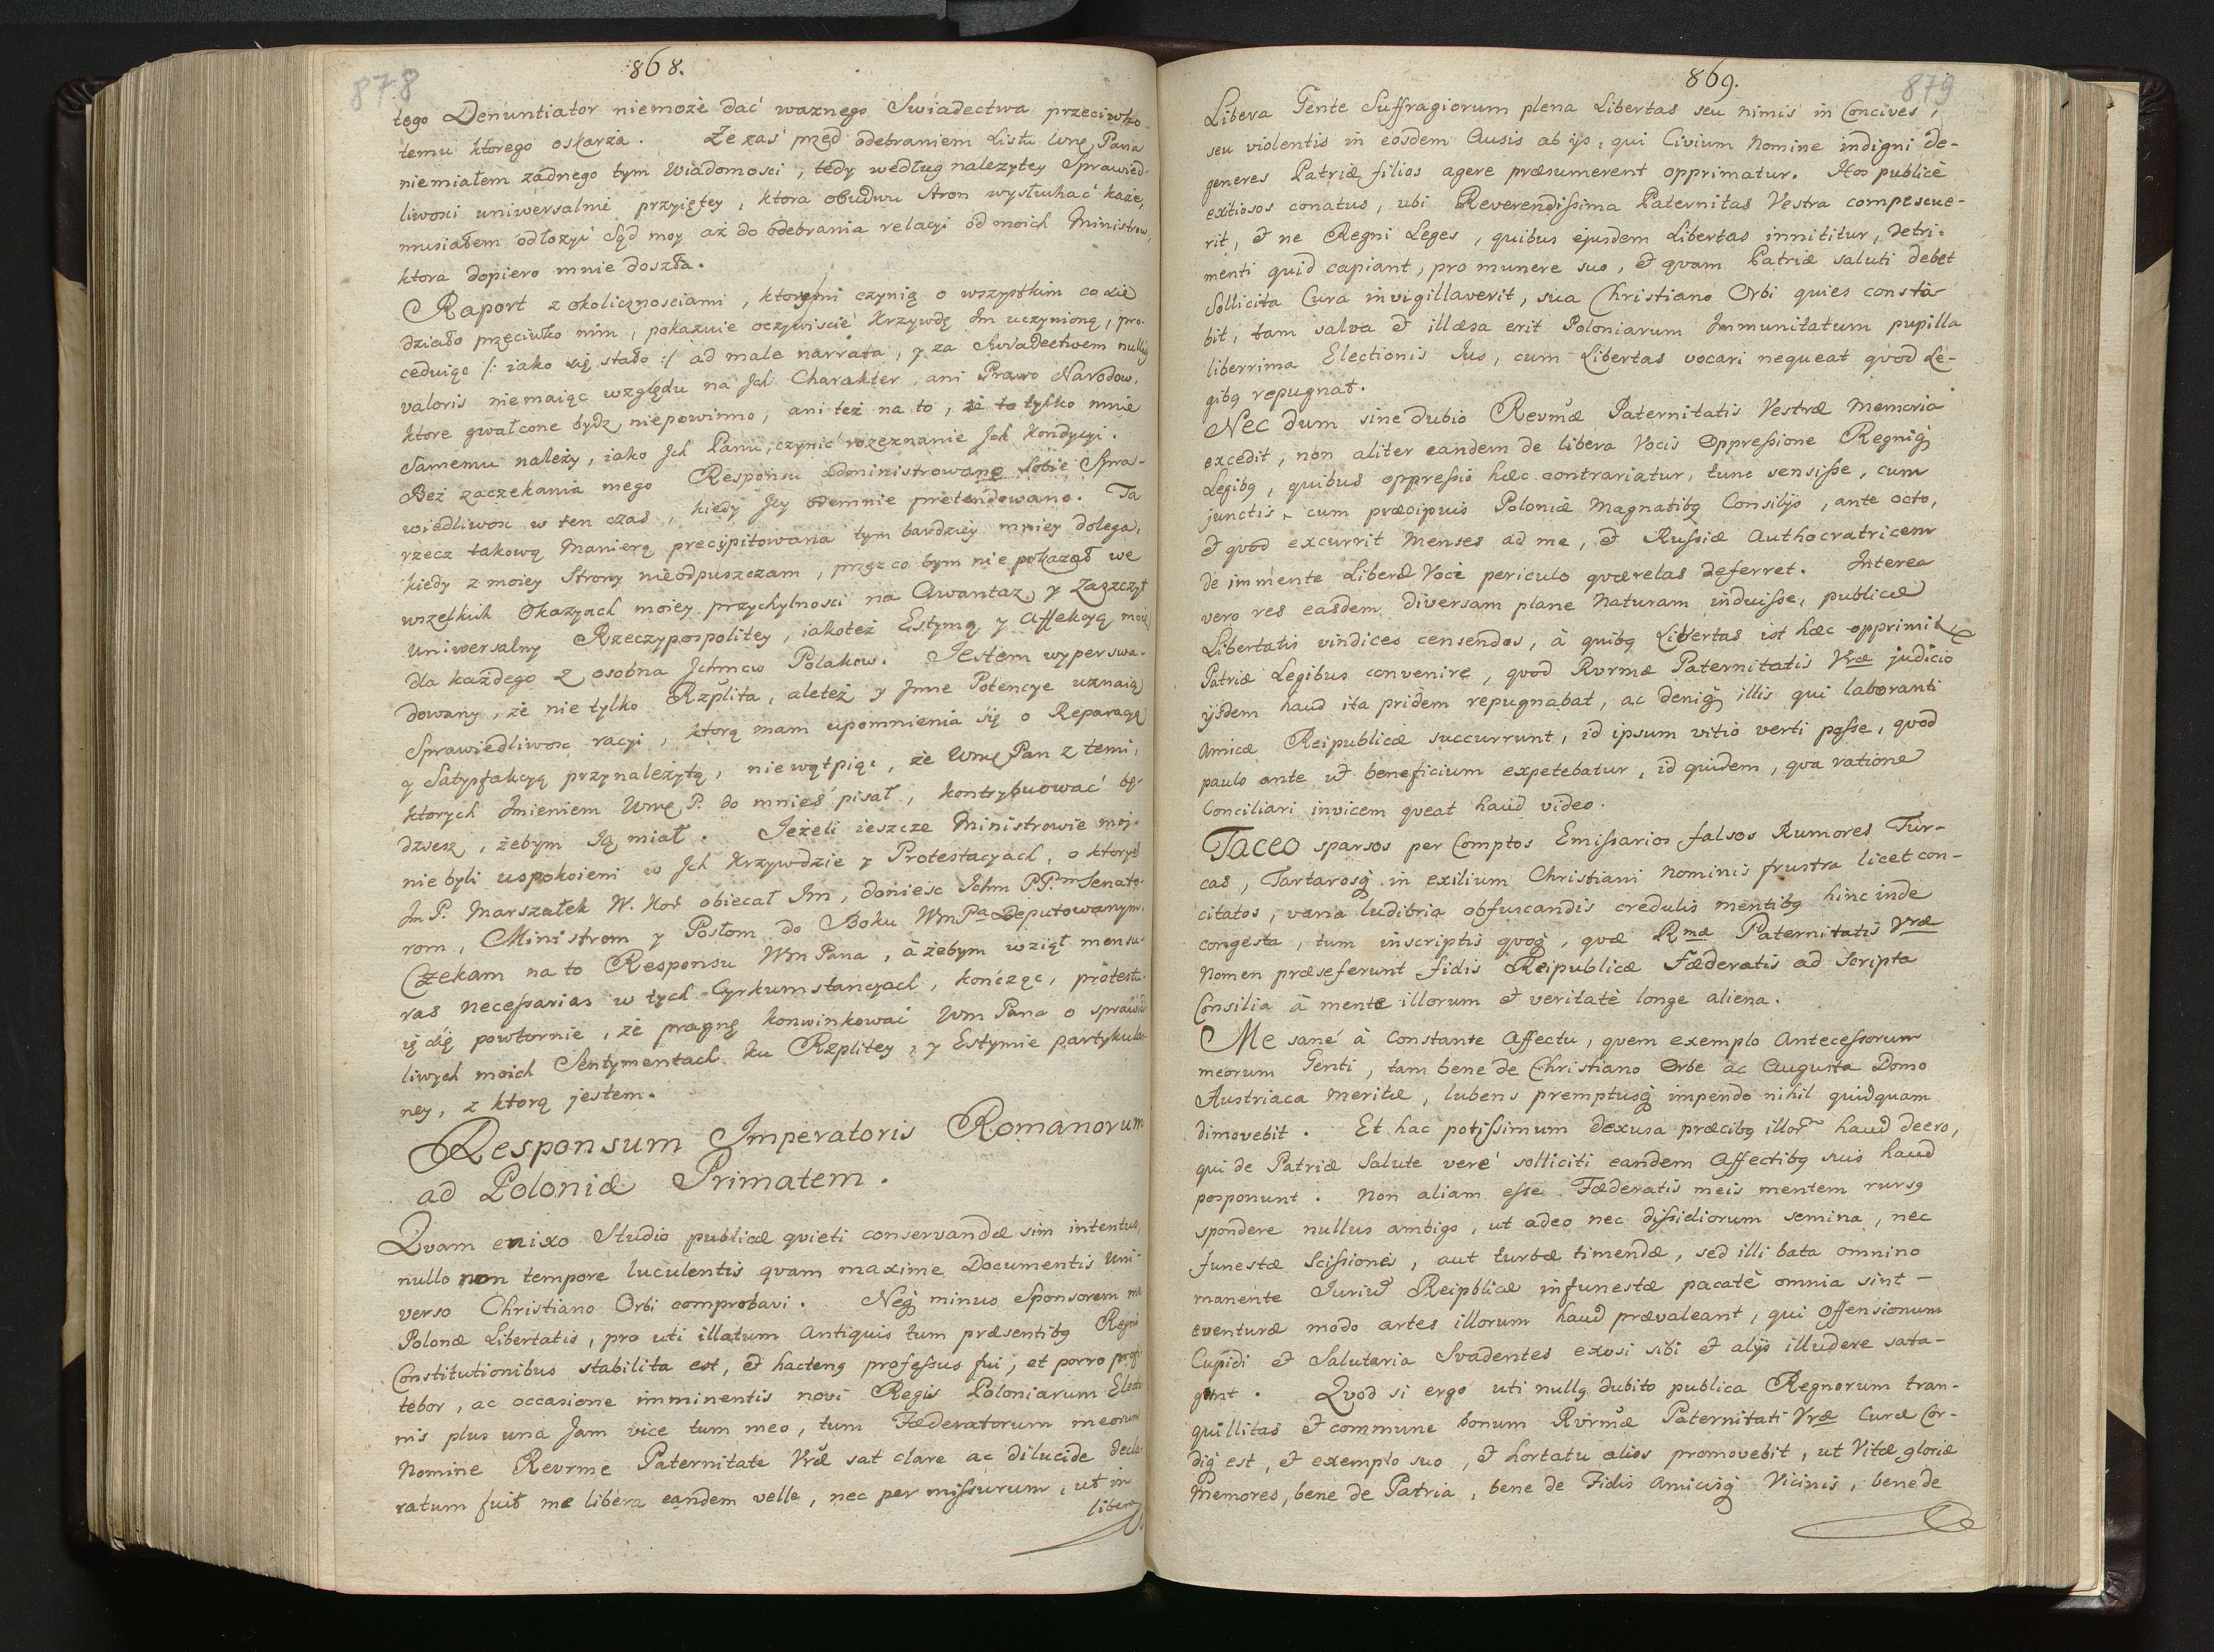 878
868.
tego Denuntiator niemoże dać ważnego Swiadectwa przeciwko
temu ktorego oskarża. Że zaś przed odebraniem Listu Wmę Pana
niemiałem żadnego tym Wiadomosci, tedy według nalezytey Sprawied-
liwosci uniwersalnie przyiętey, ktora obudwu stron wysłuchać każe,
musiałem odłożyć Sąd moy aż do odebrania relacyi od moich Ministrow,
ktora dopiero mnie doszła.
Raport z okolicznosciami, ktorymi czynią o wszystkim co się
działo przęciwko nim, pokazuie oczywiscie Krzywdę Im uczynioną, pro-
ceduiąc /: iako się stało :/ ad male narrata, y za Swiadectwem nullius
valoris nie maiąc względu na Ich Charakter, ani Prawo Narodow,
ktore gwałcone bydz niepowinno, ani też na to, że to tylko mnie
Samemu należy, iako Ich Panu, czynić rozeznanie Ich Kondycyi.
Beż zaczekania mego Responsu administrowano sobie Spra-
wiedliwosc w ten czas, kiedy Iey odemnie pretendowano. Ta
rzecz takową Manierą precypitowana tym bardziey mniey dolega,
kiedy z moiey Strony nieodpuszczam, przez co bym nie pokazał we
wszelkich Okazyach moiey przychylnosci na Awantaz, y Zaszczyt
uniwersalny Rzeczypospolitey, iakoteż Estymę y Affekcyą moię
dla każdego z osobna Ichmcw Polakow. Iestem wyperswa-
dowany, że nie tylko Rzplita, aleteż y Inne Potencye uznaią
Sprawiedliwosc racyi, ktorą mam upomnienia się o Reparacyą
y Satysfakcyą przynależytą, niewątpiąc, że Wmę Pan z temi,
ktorych Imieniem Wmę P. do mnieś pisał, kontrybuować bę-
dziesz, żebym Ią miał. Ieżeli ieszcze Ministrowie moi
nie byli uspokoieni w Ich Krzywdzie y Protestacyach, o ktorych
Im P. Marszałek W. Kor obiecał Im, doniesc Ichm PP.m Senato-
rom, Ministrom y Posłom do Boku Wm Pa Deputowanym.
Czekam na to Responsu Wm Pana, áżebym wziął mensu-
ras necessarias w tych Cyrkumstancyach, kończąc, protestu-
ię się powtornie, że pragnę konwinkować Wm Pana o sprawied
liwych moich Sentymentach ku Rzplitey, y Estymie partykular-
ney, z ktorą jestem.
Responsum Imperatoris Romanorum
ad Poloniæ Primatem.
Qvam enixo Studio publicæ qvieti conservandæ sim intentus,
nullo non tempore luculentis qvam maxime Documentis Uni-
verso Christiano Orbi comprobavi. Neq minus Sponsorem me
Polonæ Libertatis, pro uti illatum Antiquis tum præsentibq Regni
Constitutionibus stabilita est, & hactenq professus fui, et porro profi-
tebor, ac occasione imminentis novi Regis Poloniarum Electio
nis plus una Jam vice tum meo, tum Fæderatorum meorum
Nomine Revrme Paternitate Vræ sat clare ac dilucide decla-
ratum fuit me libera eandem velle, nec per missurum, ut in
libera
879
869.
Libera Gente Suffragiorum plena Libertas seu nimis in Concives,
seu violentis in eosdem Ausis ab ijs, qui Civium Nomine indigni de-
generes Patriæ filios agere præsumerent opprimatur. Hos publicè
exitiosos conatus, ubi Reverendissima Paternitas Vestra compescue-
rit, & ne Regni Leges, quibus ejusdem Libertas innititur, detri-
menti quid capiant, pro munere suo, & qvam Patriæ saluti debet
Sollicita Cura invigillaverit, sua Christiano Orbi quies consta-
bit, tam salva & illæsa erit Poloniarum Immunitatum pupilla
liberrima Electionis Ius, cum Libertas vocari nequeat qvod Le-
gibq repugnat.
Nec dum sine dubio Revmæ Paternitatis Vestræ Memoria
excedit, non aliter eandem de libera Vocis Oppressione Regniq
Legibq, quibus oppressio hæc contrariatur, tunc sensisse, cum
junctis cum præcipuis Poloniæ Magnatibq Consilijs, ante octo,
& qvod excurrit Menses ad me, & Russiæ Authocratricem
de immente Liberæ Voci periculo qværelas deferret. Interea
vero res easdem diversam plane Naturam induisse, publicæ
Libertatis vindices censendos, à quibq Libertas ist hæc opprimit
Patriæ Legibus convenire, qvod Rvrmæ Paternitatis Vræ judicio
ijsdem haud ita pridem repugnabat, ac deniq illis qui laboranti
Amicæ Reipublicæ succurrunt, id ipsum vitio verti posse, qvod
paulo ante ut beneficium expetebatur, id quidem, qva ratione
Conciliari invicem qveat haud video.
Taceo sparsos per Comptos Emissarios falsos Rumores Tur-
cas, Tartarosq in exilium Christiani Nominis frustra licet con-
citatos, vana ludibria obfuscandis credulis mentibq hinc inde
congesta, tum inscriptis qvoq, qvæ Rmæ Paternitatis Vræ
Nomen præseferunt fidis Reipublicæ Fæderatis ad scripta
Consilia à mente illorum & veritatè longe aliena.
Me sané à Constante Affectu, qvem exemplo Antecessorum
meorum Genti, tam bene de Christiano Orbe ac Augusta Domo
Austriaca Meritæ, lubens premptusq impendo nihil quidquam
dimovebit. Et hac potissimum dexusa præcibq illorm haud deero,
qui de Patriæ Salute veré solliciti eandem Affectibq suis haud
posponunt. Non aliam esse Fæderatis meis mentem rursq
spondere nullus ambigo, ut adeo nec dissidiorum semina, nec
funestæ Scissionis, aut turbæ timendæ, sed illi bata omnino
manente Iurium Reipblicæ infunestæ pacatè omnia sint -
eventuræ modo artes illorum haud prævaleant, qui Offensionum
Cupidi & Salutaria Svadentes exosi sibi & alijs illudere sata-
gunt. Qvod si ergo uti nullq dubito publica Regnorum tran-
quillitas & commune bonum Rvrmæ Paternitati Vræ Curæ Cor-
diq est, & exemplo suo, & hortatu alios promovebit, ut Vitæ gloriæ
Memores, bene de Patria, bene de Fidis Amicisq Vicinis, bene de